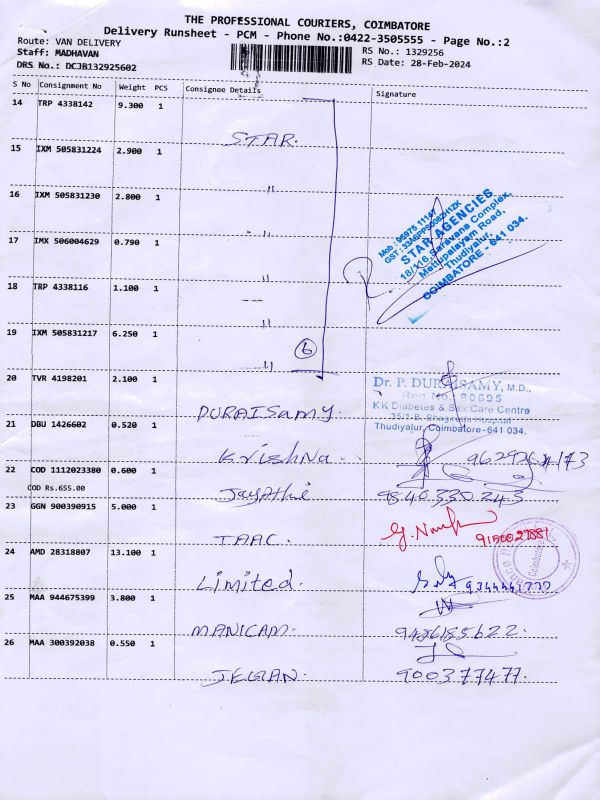 THE PROFESSIONAL COURIERS, COIMBATORE
Delivery Runsheet - PCM - Phone No.:0422-3505555 - Page No.:2
Route: VAN DELIVERY
RS No.: 1329256
Staff: MADHAVAN
RS Date: 28-Feb-2024
DRS No.: DCJB132925602
S No Consignment No Weight PCS Consignee Details Signature
14 TRP 4338142 9.300 1
STAR.
15 IXM 505831224 2.900 1
"
16 IXM 505831230 2.800 1
"
17 IMX 506004629 0.790 1
"
18 TRP 4338116 1.100 1
"
19 IXM 505831217 6.250 1
"
6
Mob: 95975 11141
STAR AGENCIES
18/116, Saravana Complex,
Mettupalayam Road,
Thudiyalur,
COIMBATORE - 641 034.
20 TVR 4198201 2.100 1
DURAISAMY.
Dr. P. DURAISAMY, M.D.,
Reg. No.: 80695
KK Diabetes & Sex Care Centre
Thudiyalur, Coimbatore-641 034.
21 DBU 1426602 0.520 1
Krishna.
22 COD 1112023380 0.600 1
COD Rs.655.00
Jayathi
9840330243
23 GGN 900390915 5.000 1
TAAC.
9150027881
24 AMD 28318807 13.100 1
Limited.
25 MAA 944675399 3.800 1
MANICAM.
9436185622.
26 MAA 300392038 0.550 1
JEGAN.
900377477.